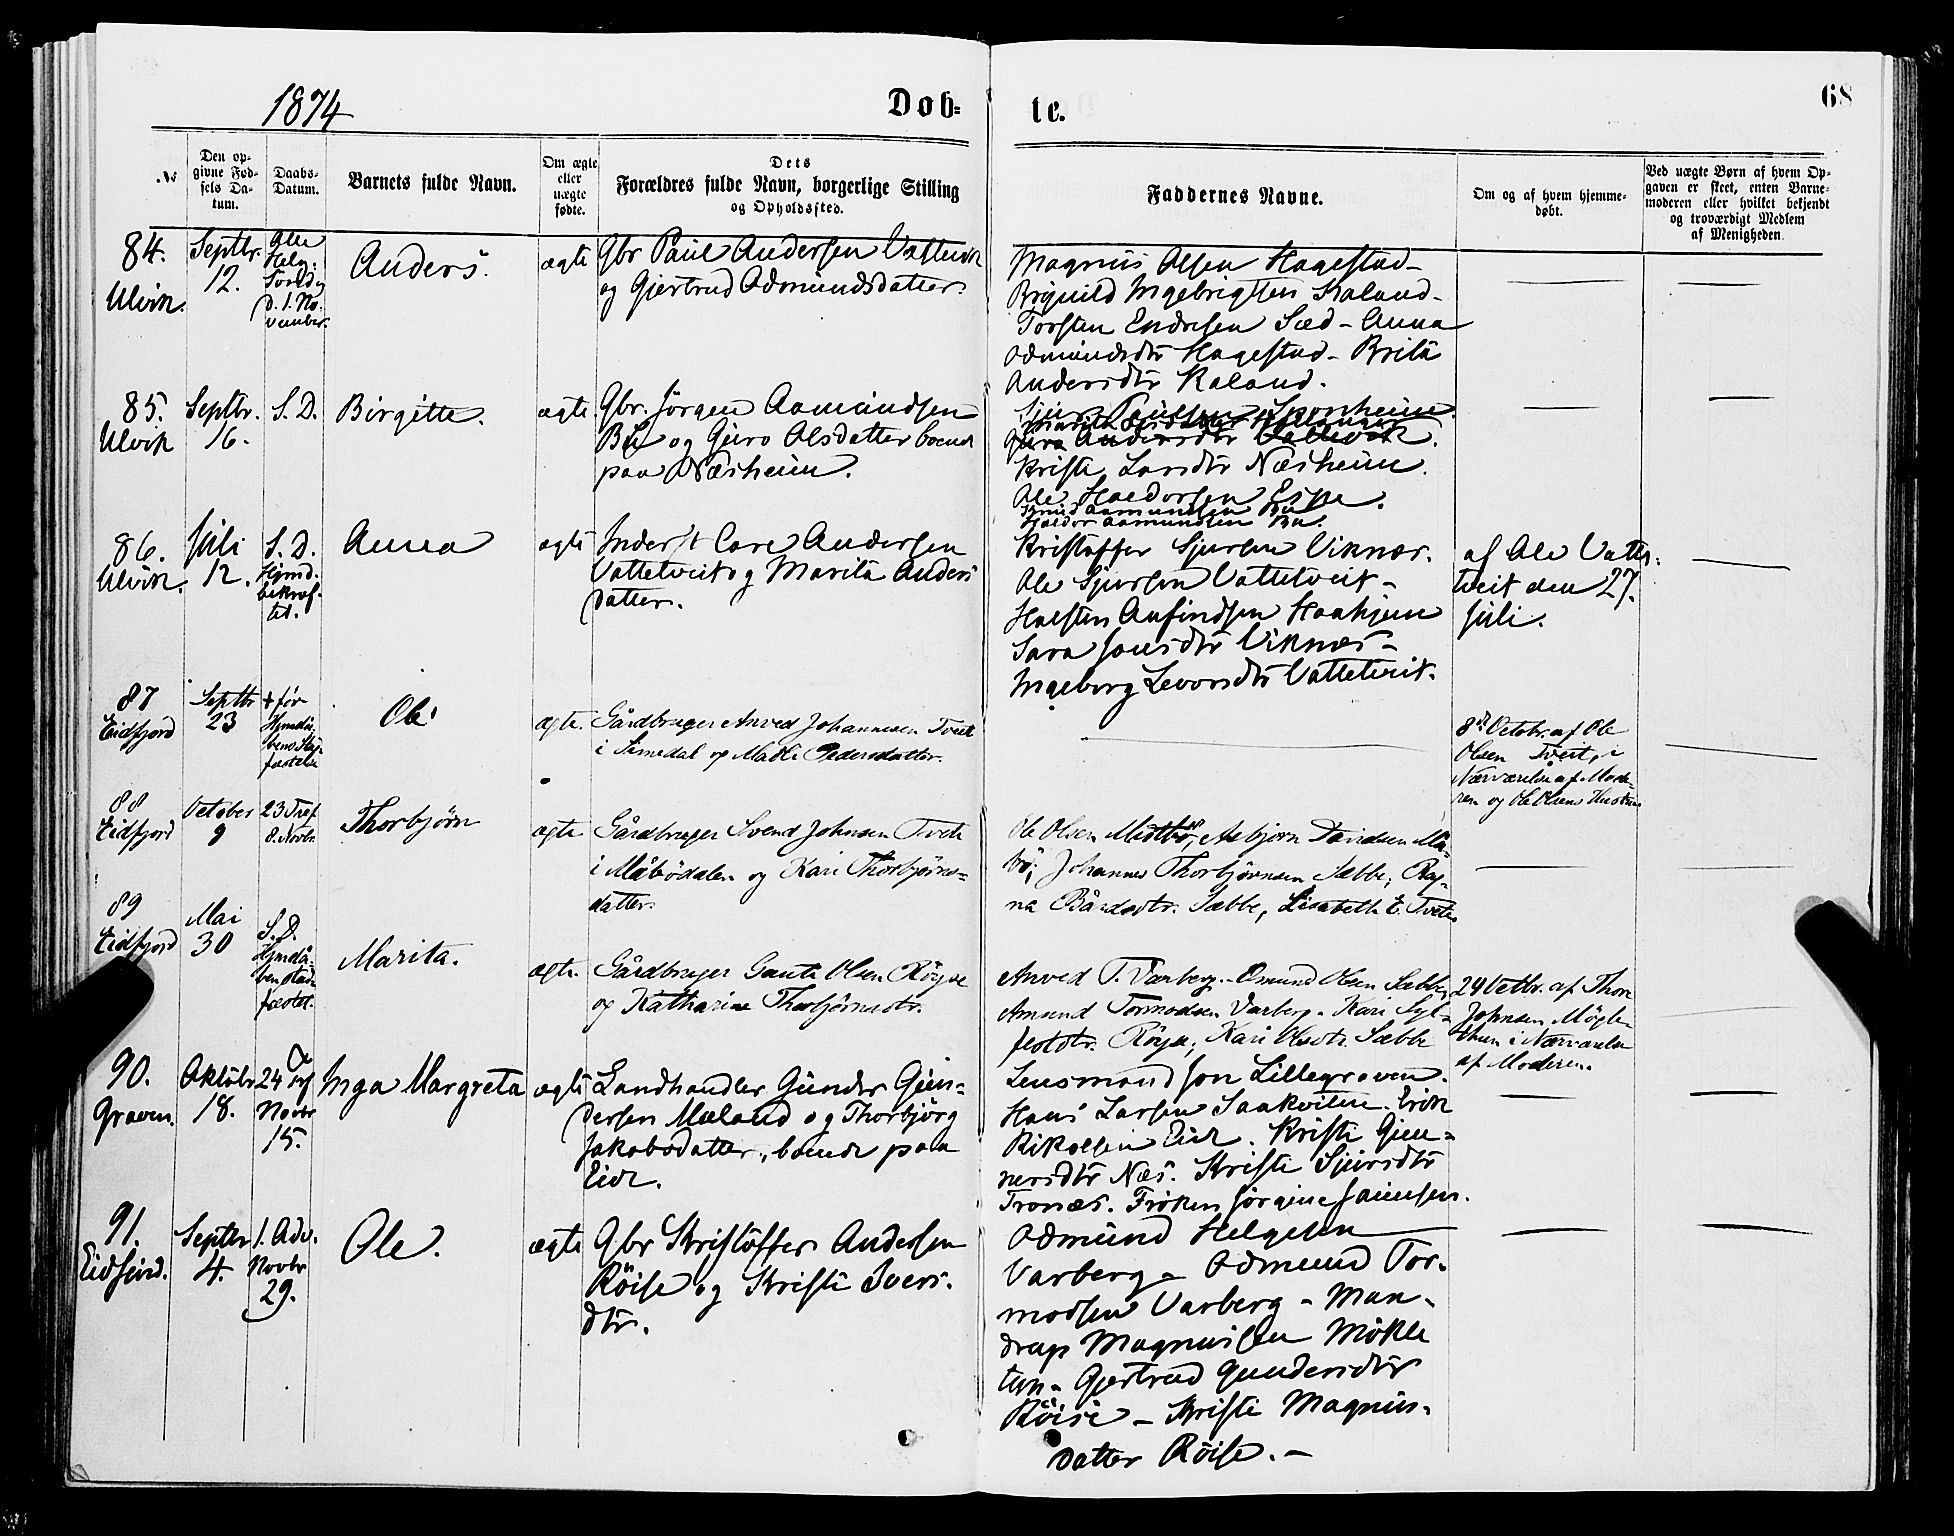 1874
Døb-
te.
68
№
Den op-
givne Fød-
sels Da-
tum.
Daabs-
Datum.
Barnets fulde Navn.
Om ægte
eller
uægte
fødte.
Dets
Forældres fulde Navn, borgerlige Stilling
og Opholdssted.
Faddernes Navne.
Om og af hvem hjemme-
døbt.
Ved uægte Børn af hvem Op-
gaven er skeet, enten Barne-
moderen eller hvilket bekjendt
og troværdigt Medlem
af Menigheden.
84.
Ulvik.
Septbr.
12.
Alle
Helg:
d. 1. No-
vember.
Anders.
ægte
Gbr Paul Andersen Vallevik
og Gjertrud Odmundsdatter.
Magnus Olsen Hagestad-
Brynild Ingebrigtsen Kaland-
Torsten Endresen Sæd - Anna
Odmundsdtr Hagestad - Brita
Andersdtr Kaland.
85.
Ulvik
Septbr.
16.
S. D.
Birgitte.
ægte
Gbr. Jørgen Aamundsen
Bu og Guro Olsdatter boende
paa Næsheim.
Sjur Paulsen Sponheim
Guro Andersdtr Vallevik.
Kristi Larsdtr Næsheim.
Ole Haldorsen Espe.
Knud Aamundsen Bu
Haldor Aamundsen Bu.
86.
Ulvik.
Juli
12.
S. D.
Hjmd.
bekræf-
tet.
Anna
ægte
Inderst Lare Andersen
Vattetveit og Marita Anders
datter.
Kristoffer Sjursen Viknæs.
Ole Sjursen Vattetveit -
Halsten Anfindsen Haahjem
Sara Jonsdtr Viknæs -
Ingeborg Levorsdtr Vattetveit.
af Ole Vatte-
tveit den 27.
Juli.
87
Eidfjord
Septbr
23
+ før
Hjmdå-
bens Stad-
fæstelse
Ole
ægte.
Gårdbruger Anved Johannesen Tveit
i Simedal og Madli Pedersdatter.
8de Octobr. af Ole
Olsen Tveit, i
Nærværelse af Mode-
ren og Ole Olsens Hustru
88
Eidfjord
October
9
23 Tref
8. Novbr.
Thorbjørn
ægte
Gårdbruger Svend Johnsen Tveit
i Måbødalen og Kari Thorbjørns-
datter.
Ole Olsen Midtbø, Asbjørn Davidsen Må-
bø, Johannes Thorbjørnsen Sæbbe, Rag-
na Bårdsdtr. Sæbbe, Lisabeth E. Tveit
89
Eidfjord
Mai
30
S. D.
Hjmdå-
ben stad-
fæstet.
Marita.
ægte.
Gårdbruger Gaute Olsen Røyse
og Katharina Thorbjørnsdtr.
Anved T. Varberg - Osmund Olsen Sæbbe,
Amund Tormodsen Varberg - Kari Syl-
festdtr. Røyse, Kari Olsdtr. Sæbbe
24 Octbr. af Thore
Johnsen Møgle-
thun i Nærværelse
af Moderen.
90.
Graven.
Oktobr
18.
24 S ef
Novbr
15.
Inga Margreta
ægte
Landhandler Gunder Gun-
dersen Mæland og Thorbjørg
Jakobsdatter, boende paa
Eide.
Lensmand Jon Lillegraven.
Hans Larsen Saakvitne. Erik
Rikolfsen Eide. Kristi Gun-
nersdtr Næs. Kristi Sjursdtr
Tronæs. Frøken Jørgine Jaunsen.
91.
Eidfjord.
Septbr
4.
1. Adv.
Novbr
29.
Ole.
ægte
Gbr Kristoffer Andersen
Röise og Kristi Ivers-
dtr.
Odmund Helgesen
Varberg - Odmund Tor-
modsen Varberg - Man-
drup Magnussen Møkle
tun - Gjertrud Gundersdtr
Röise - Kristi Magnus-
datter Röise. -